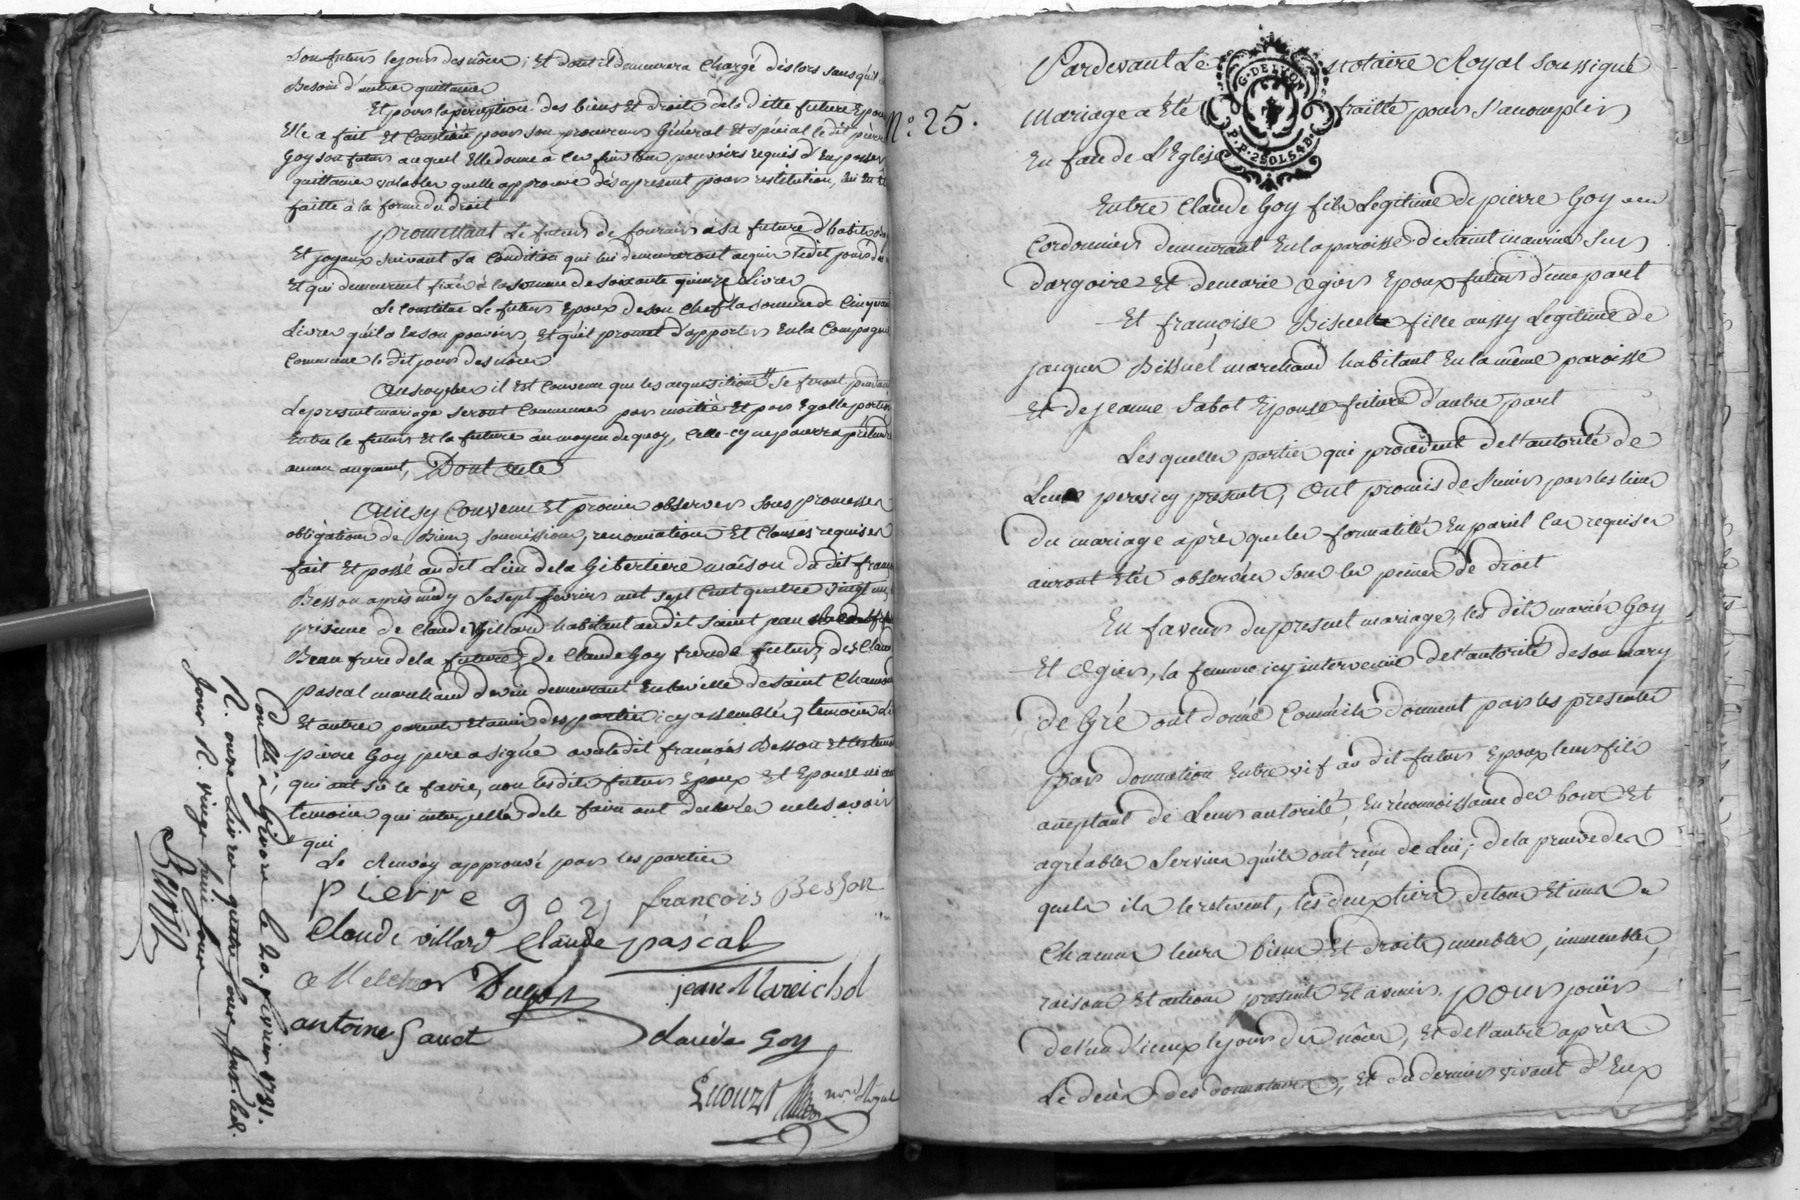 son futur le jour des nôces ; Et dont il demeurera chargé dès lors sans qu'il
Besoin d'autre quittance
Et pour la perception des biens Et droits de la ditte future Epouse
Elle a fait Et Constitué pour son procureur Général Et spécial le dit pierre
Goy son futur auquel Elle donne à ces fins tous pouvoirs requis d'En passer
quittances valables quelle approuve dès apresent pour restitution, lui En
faitte à la forme du droit
promettant Le futur de fournir à sa future d'habits
Et joyaux suivant sa Condition qui lui demeureront acquis ledit jour
Et qui demeurent fixés à la somme de soixante quinze Livres
Se Constitue Le futur Epoux de son chef la somme de Cinquante
Livres quil a En son pouvoir, Et quil promet d'apporter En la Compagnie
Commune le dit jour des nôces
il Est Convenu que les acquisitions se feront pendant
Le present mariage seront Communes par moitié Et par Egalle portion
Entre le futur Et la future au moyen de quoy, Celle-cy ne pourra prétendre
aucun augment, Dont acte
Ainsy Convenu Et promis observer sous promesses
obligations de Biens, soumissions, renonciations Et Clauses requises
fait Et passé audit Lieu de la Gibertiere maison du dit françois
Besson après midy Le sept fevrier mil sept Cent quatre vingt un
présence de Claude Villard habitant audit saint jean
Beau frere de la future, de Claude Goy frere du futur, de Claude
pascal marchand de vin demeurant En la ville de saint Chamond
Et autres parents Et amis des parties icy assemblés, temoins
pierre Goy pere a signé avec ledit françois Besson Et les temoins
qui ont sû le faire, non les dits futurs Epoux Et Epouse ni
temoins qui interpellés de le faire ont declaré ne le savoir
qui
Le Renvoy approuvé par les parties
pierre goy françois Besson
Claude villard Claude pascal
Melchor Dugas jean Mareichol
antoine Gauct Claude Goy
nore Royal
Conllé à Givors le 20. février 1781.
R. onze Livres quatre sous, Jns. hol.
Jour R. vingt huit sous
N.º 25.
Pardevant Le notaire Royal soussigné
G. DE LYON
P. P. 2 SOLS 4 D.
mariage a Eté faitte pour s'accomplir
En face de L'Eglise
Entre Claude Goy fils Légitime de pierre Goy
Cordonnier demeurant En la paroisse de saint maurice sur
dargoire Et de marie Ogier Epoux futur d'une part
Et françoise Bissuel fille aussy Légitime de
jacques Bissuel marchand habitant En la même paroisse
Et de jeanne Sabot Epouse future d'autre part
Lesquelles parties qui procedent de l'autorité de
Leurs peres icy presents, Ont promis de s'unir par les liens
du mariage après que les formalités En pareil Cas requises
auront Etés observées sous les peines de droit
En faveur du present mariage, les dits mariés Goy
Et Ogier, la femme icy intervenüe de l'autorité de son mary
de Gré ont donné Comme ils donnent par les presentes
par donnation Entre vif au dit futur Epoux leur fils
acceptant de Leur autorité, En réconnoissance des bons Et
agréables services qu'ils ont reçu de Lui ; de la preuve des
quels ils le relevent, les deux tiers de tous Et uns
chacuns leurs biens Et droits, meubles, immeubles,
raisons Et actions presents Et avenirs. pour jouïr
de l'un d'iceux le jour des nôces, Et de l'autre après
Le decès des donnateurs, Et du dernier vivant d'Eux